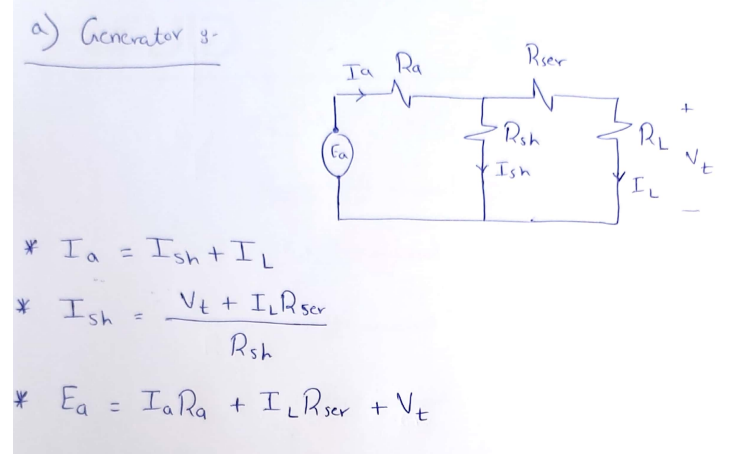 a) Generator :-
Ia Ra Rser
Ea
Rsh
Ish
RL
IL
+
Vt
-
* Ia = Ish + IL
* Ish = Vt + ILRser
Rsh
* Ea = IaRa + ILRser + Vt